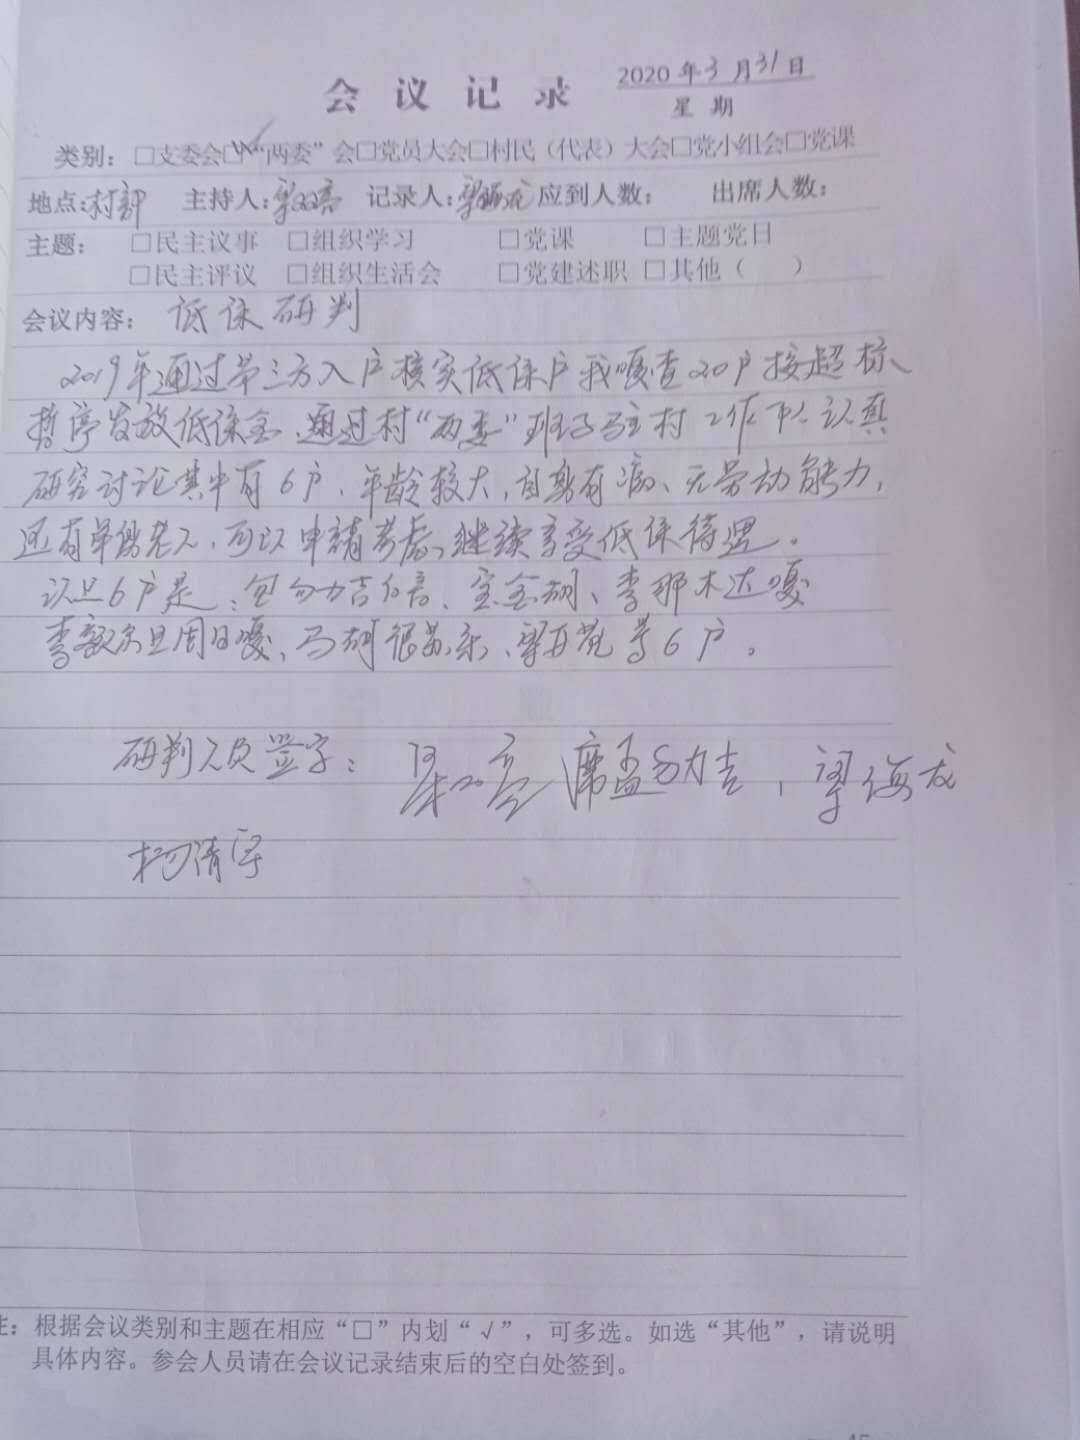 会议记录 2020年3月31日
星期
类别：□支委会☑“两委”会□党员大会□村民（代表）大会□党小组会□党课
地点：村部 主持人：梁双亮 记录人：梁海龙 应到人数： 出席人数：
主题： □民主议事 □组织学习 □党课 □主题党日
□民主评议 □组织生活会 □党建述职 □其他（ ）
会议内容： 低保研判
2019年通过第三方入户核实低保户我嘎查20户按超标
暂停发放低保金、通过村“两委”班子驻村工作队认真
研究讨论其中有6户、年龄较大，自身有病、无劳动能力，
还有单身老人，可以申请考虑、继续享受低保待遇。
认定6户是：包勿力吉 宝金胡、李那木达嘎
李额尔旦周日嘎、马胡很苏东、梁 等6户。
研判人员签字： 梁双亮 席孟和力吉，梁海龙
柯清宇
注：根据会议类别和主题在相应“□”内划“√”，可多选。如选“其他”，请说明
具体内容。参会人员请在会议记录结束后的空白处签到。